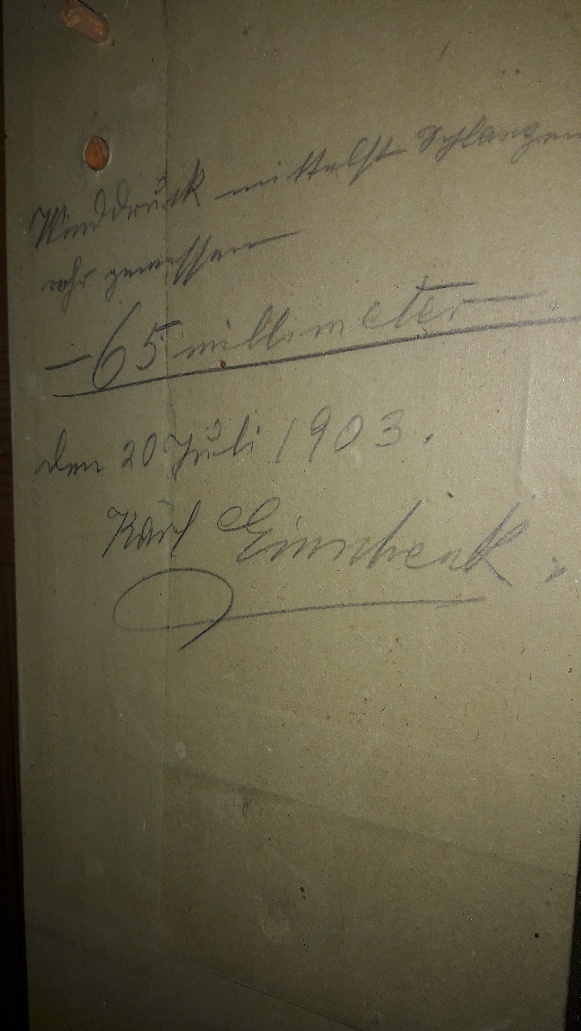 Winddruck mittelst Schlangen
rohr gemessen
– 65 millimeter
den 20 Juli 1903.
Karl Einschenk